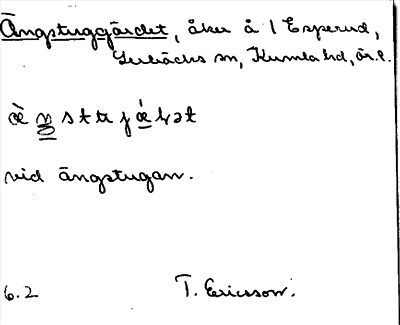 Ängstuggärdet, åker å 1 Esperud,
Lerbäcks sn, Kumla hd, ör. l.
vid ängstugan.
6.2 T. Ericsson.